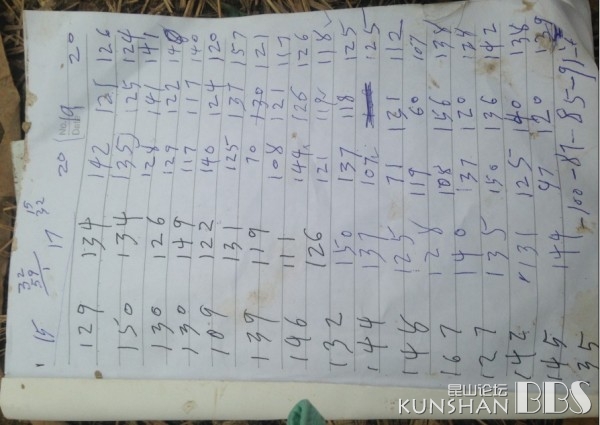 15 17 20 19 20
129 134 142 121 126
150 134 135 125 124
130 126 128 141 141
130 149 129 122
109 122 117 117 140
131 140 124 120
139 119 125 131 157
146 111 70 130 121
132 126 108 121 117
144 150 144 126 126
148 137 121 112 118
167 125 137 118 125
127 128 107 125
142 140 71 131 112
145 135 119 60 107
35 131 108 146 138
144 137 120 124
150 136 142
125 140 138
97 120 39
100-87-85-91-
昆山论坛
KUNSHAN BBS